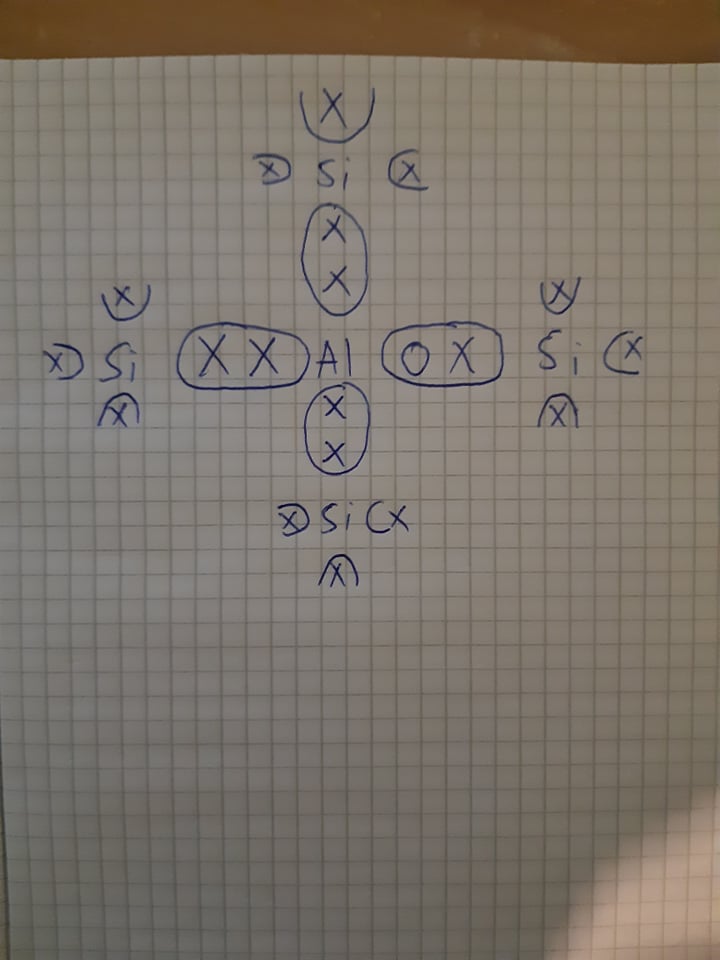 X
X Si X
X
X
X X
Si X X Al O X Si X
X X X
X
X Si X
X